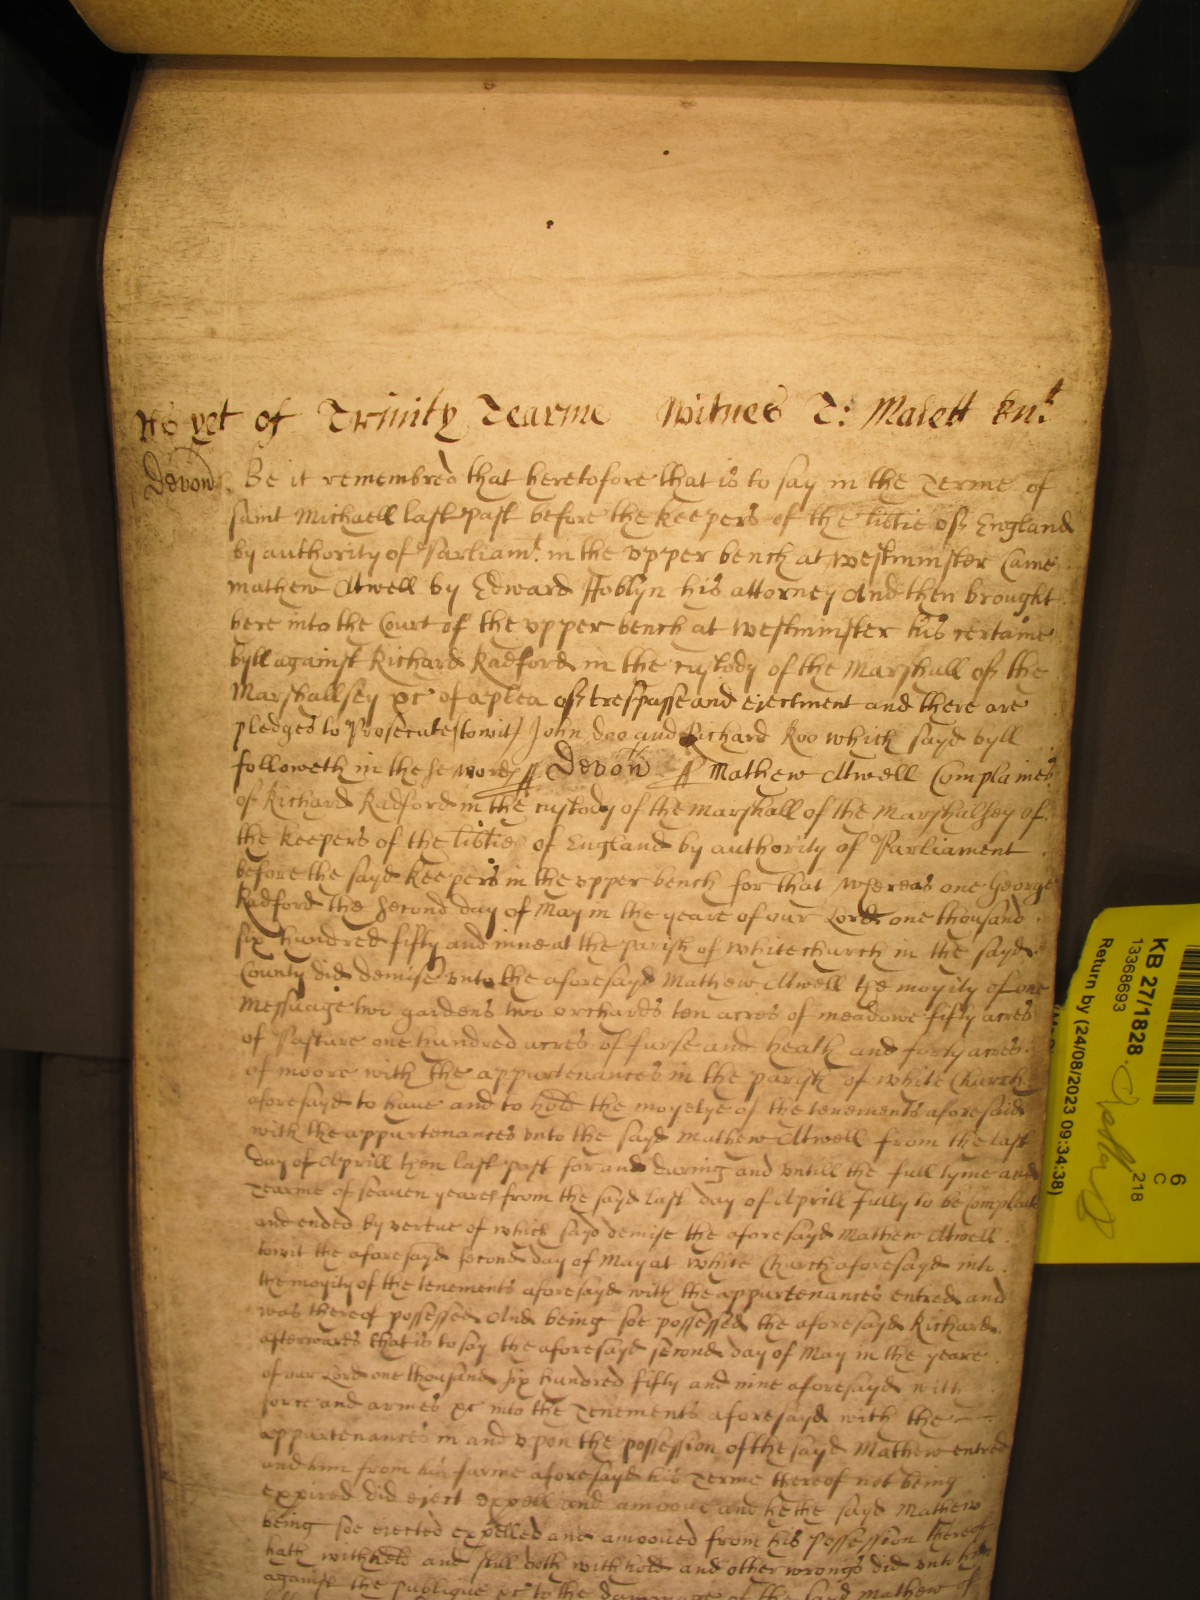 As yet of Trinity Tearme Witnes T: Malett kn:t
Devon: Be it remembred that heretofore that is to say in the Terme of
saint Michaell last past before the keepers of the lib'tie of England
by authority of Parliam:t in the vpper bench at westminster Came
mathew Atwell by Edward Hoblyn his attorney And then brought
here into the Court of the vpper bench at westminster his certaine
byll against Richard Radford in the custody of the Marshall of the
Marshallsey &c of a plea of trespasse and ejectment and there are
pledges to Prosecute (towit) John doo and Richard Roo which sayd byll
followeth in these words ss Devon ss Mathew Atwell Complaines
of Richard Radford in the custody of the marshall of the marshalsey of
the keepers of the lib'tie of England by authority of Parliament
before the sayd keepers in the vpper bench for that whereas one George
Radford the second day of May in the yeare of our Lord one thousand
six hundred fifty and nine at the parish of whitechurch in the sayd
County did demise vnto the aforesayd Mathew Atwell the moyity of one
messuage two gardens two orchards ten acres of meadowe fifty acres
of Pasture one hundred acres of furse and heath and forty acres
of moore with the appurtenances in the parish of white Church
aforesayd to haue and to hold the moyetye of the tenements aforesaid
with the appurtenances vnto the sayd mathew Atwell from the last
day of Aprill then last past for and during and vntill the full tyme and
Tearme of seauen yeares from the sayd last day of Aprill fully to be compleat
and ended by vertue of which sayd demise the aforesayd Mathew Atwell
towit the aforesayd second day of May at white Church aforesayd into
the moyity of the tenements aforesayd with the appurtenances entred and
was thereof possessed And being soe possessed the aforesayd Richard
afterwards that is to say the aforesayd second day of May in the yeare
of our Lord one thousand six hundred fifty and nine aforesayd with
force and armes &c into the Tenements aforesayd with the
appurtenances in and vpon the possession of the sayd Mathew entred
and him from his farme aforesayd his Terme thereof not being
expired did eject expell and amoove and he the sayd Mathew
being soe ejected expelled and amooued from his possession thereof
hath withheld and still doth withhold and other wrongs did vnto him
against the publique &c to the damage of the sayd mathew of
KB 27/1828
13368693
Return by (24/08/2023 09:34:38)
6
C
218